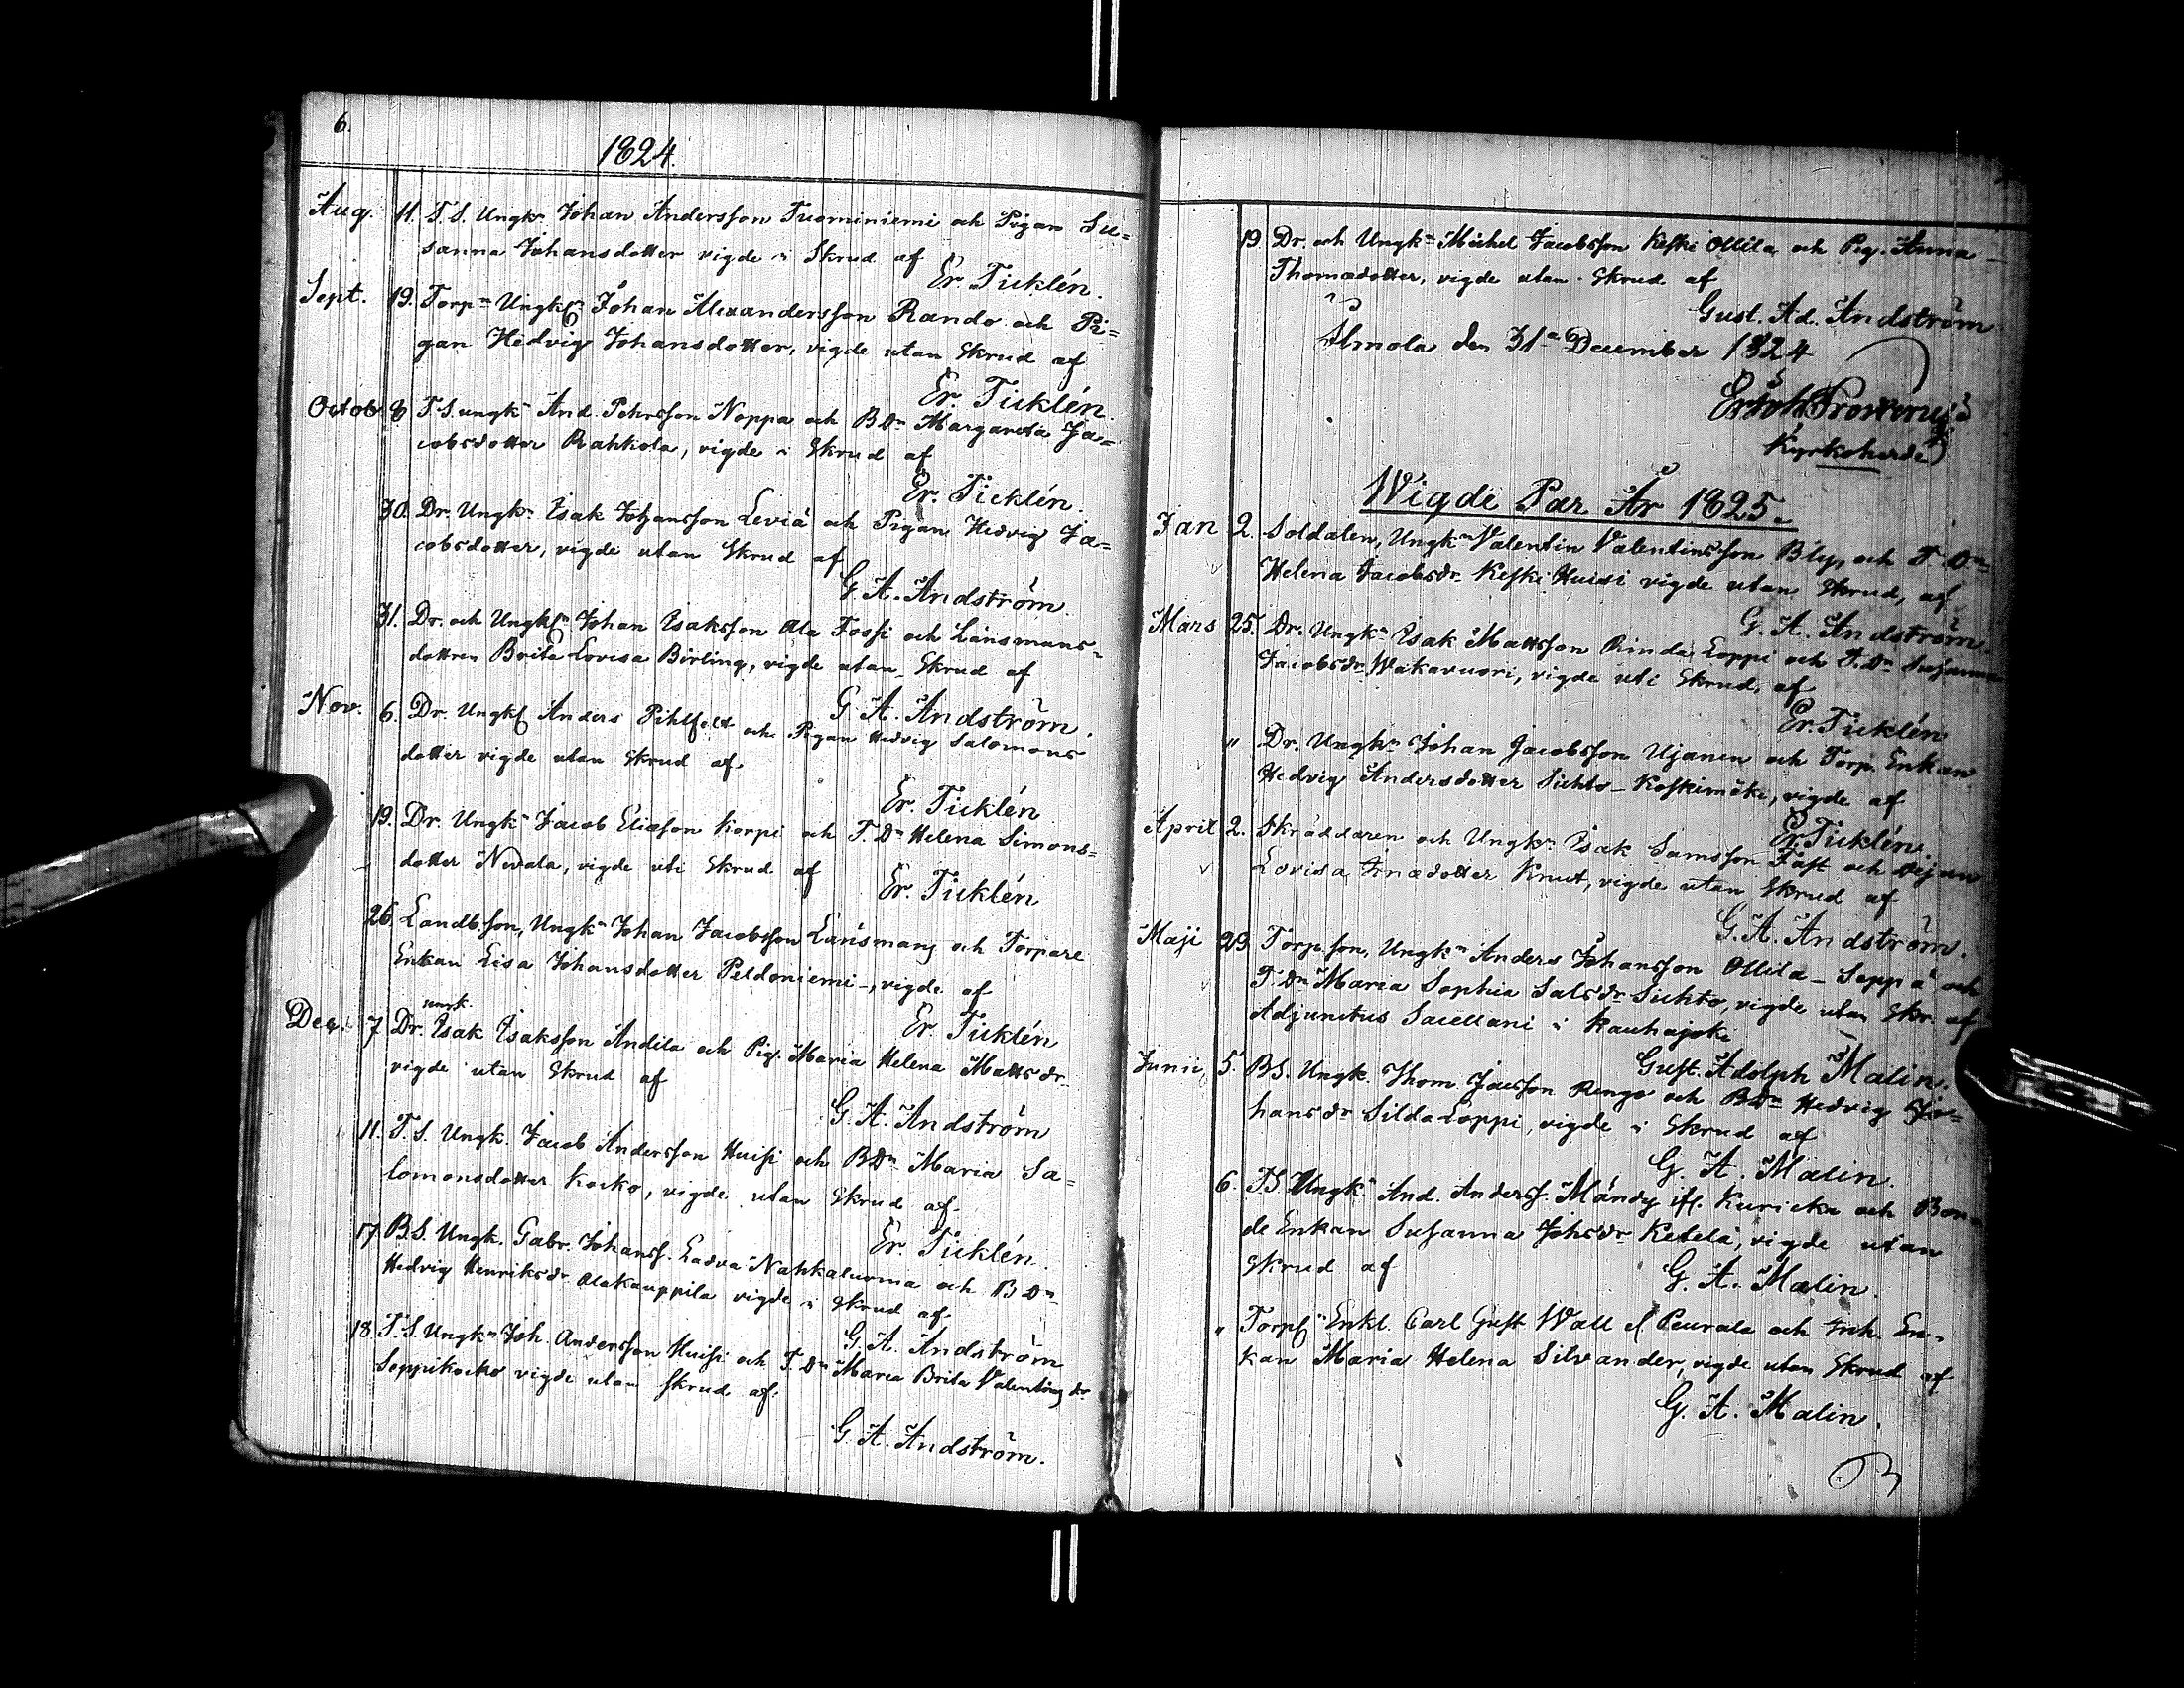 6.
1824.
Aug. 11. T. S. Ungkn Johan Andersson Tuominiemi och Pigan Su=
sanna Johansdotter vigde i Skrud af
Er. Ticklén.
Sept. 19. Torpn Ungk Johan Alexandersson Rando och Pi=
gan Hedvig Johansdotter, vigde utan Skrud af
Er. Ticklén.
Octob. T. S. ungkn And. Pehrsson Noppa och B Dn Margareta Ja=
cobsdotter Rahkola, vigde i Skrud af
Er. Ticklén.
30. Dr. Ungkn Isak Johansson Leviä och Pigan Hedvig Ja=
cobsdotter, vigde utan Skrud af
G. A. Andström.
31. Dr. och Ungkn Johan Isaksson Ala Fossi och Länsmans=
dottren Brita Lovisa Birling, vigde utan Skrud af
G. A. Andström.
Nov. 6. Dr. Ungk Anders Pihlfelt och Pigan Hedvig Salomons
dotter vigde utan Skrud af
Er. Ticklén
19. Dr. Ungkn Jacob Eliasson Korpi och T. Dn Helena Simons=
dotter Nivala, vigde uti Skrud af
Er. Ticklén
26. Landb.son, Ungkn Johan Jacobsson Länsman och Torpare
Enkan Lisa Johansdotter Peldoniemi, vigde af
Er. Ticklén
Dec. 7 Dr. ungk. Isak Isaksson Andila och Pig. Maria Helena Mattsdr.
vigde utan Skrud af
G. A. Andström
11. T. S. Ungk. Jacob Andersson Huissi och B Dn Maria Sa=
lomonsdotter Kocko, vigde utan Skrud af
Er. Ticklén.
17. B. S. Ungk. Gabr. Johanss. Ladva Nahkaluoma och B Dn
Hedvig Henriksdr. Alakauppila vigde i Skrud af
G. A. Andström
18. T. S. Ungkn Joh. Andersson Huissi och T. Dn Maria Brita Valentins dr
Seppikocko vigde utan skrud af
G. A. Andström.
19 Dr. och Ungkn Michel Jacobsson Keski Ollila och Pig. Anna
Thomædotter, vigde utan Skrud af
Gust. Ad. Andström
Ilmola den 31a December 1824
Kyrkoherde
Wigde Par År 1825.
Jan 2. Soldaten, Ungkn Valentin Valentinsson Bly, och T. Dn
Helena Jacobsdr. Keski Huissi vigde utan Skrud, af
G. A. Andström.
Mars 25. Dr. Ungkn Isak Mattsson Rinda Loppi och T. Dn Susanna
Jacobsdr Wakavuori, vigde uti Skrud, af
Er. Ticklén
" Dr. Ungkn Johan Jacobsson Ujanen och Torp. Enkan
Hedvig Andersdotter Sichto-Koskimäki, vigde af
Er. Ticklén.
April 2. Skräddaren och Ungkn Isak Samsson Fast och
Lovisa dotter Knut, vigde utan Skrud af
G. A. Andström.
Maji 29 Torp.son, Ungkn Anders Johansson Ollila-Seppä och
T. Dn Maria Sophia Salsdr Sichto, vigde utan Skr. af
Adjunctus Sacellani i Kauhajoki
Gust. Adolph Malin.
Junii 5. B S. Ungk. Thom. Jacsson Rengo och B Dn Hedvig Jo=
hansdr Silda Loppi, vigde i Skrud af
G. A. Malin.
6. T S Ungkn And. Anderss. Mändy ifr. Kuricka och Bon=
de Enkan Susanna Johsdr Ketela, vigde utan
Skrud af
G. A. Malin.
" Torp Enkl. Carl Gust Wall Peurala och Inh. En=
kan Maria Helena Silvander, vigde utan Skrud af
G. A. Malin.